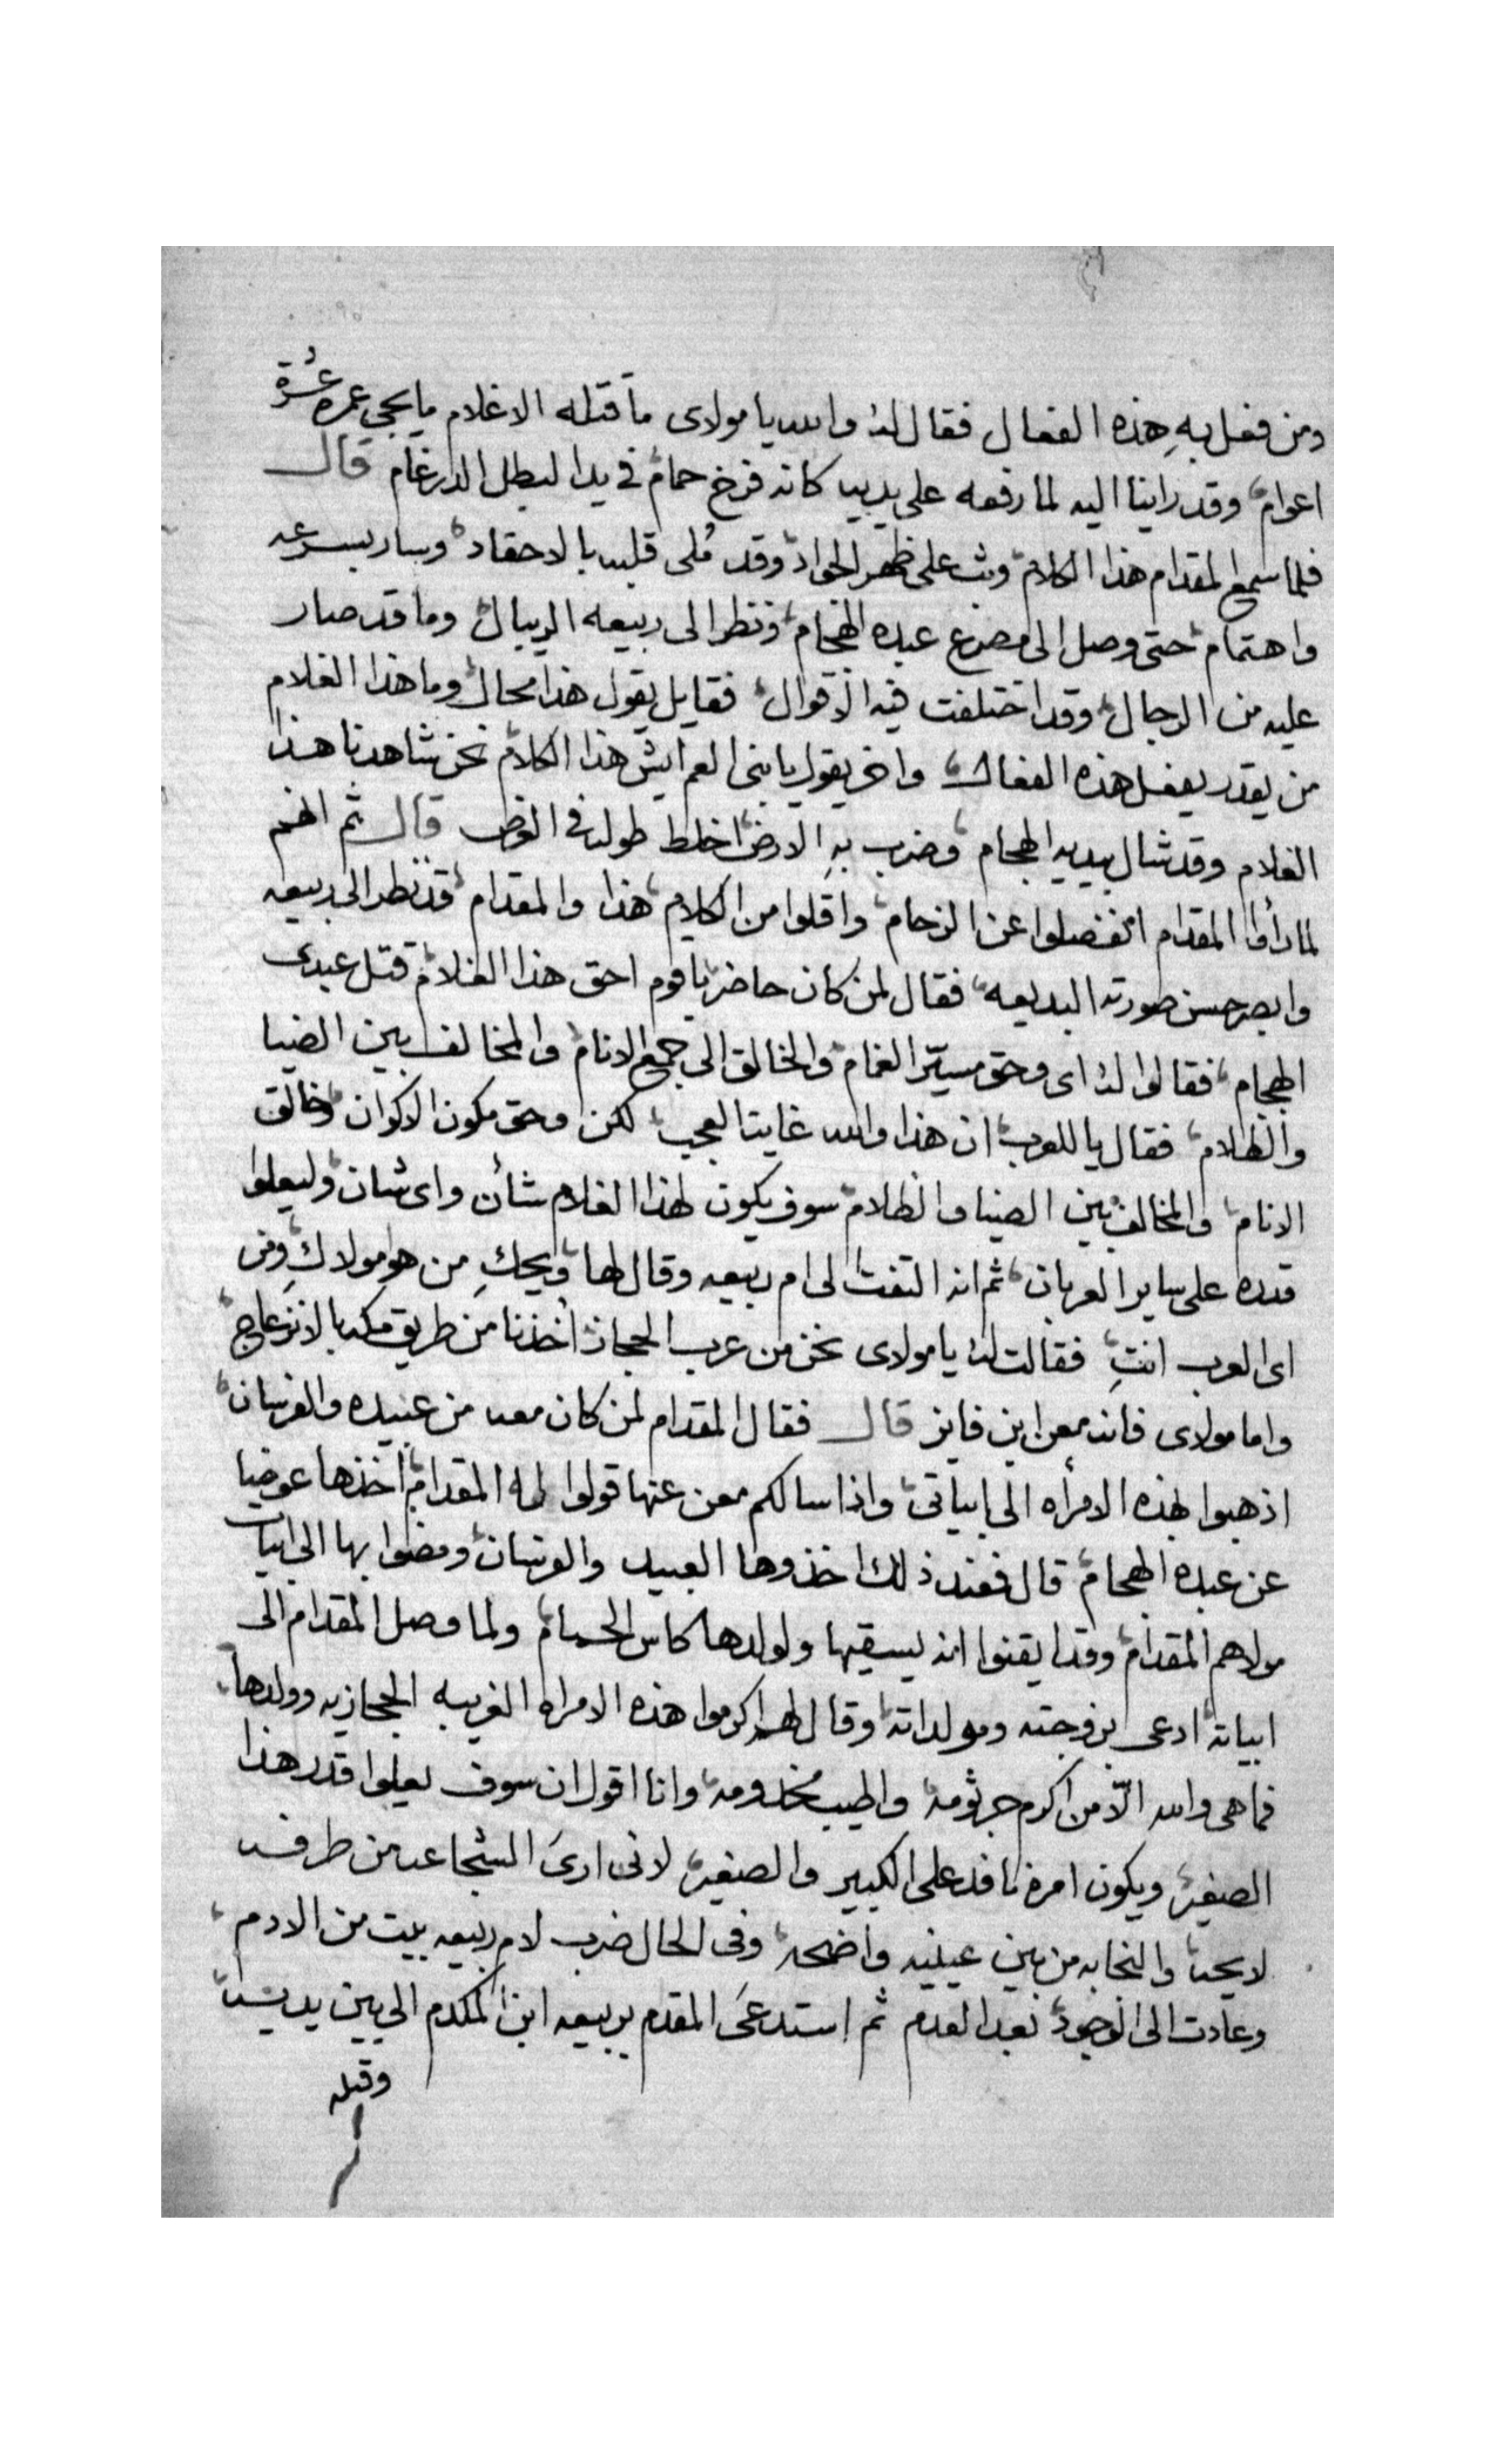 ومن فعل بهِ هذه الفعال فقال لهُ والله يا مولاى ما قتله الا غلام ما يجى عمره عشرة
اعوام وقد راينا اليه لما رفعه على يديه كانه فرخ حمام فى يد البطل الدرغام قال
فلما سمع المقدام هذا الكلام وثب على ظهر الجواد وقد مُلى قلبه بالاحقاد وسار بسرعه
واهتمام حتى وصل الى مصرع عبده الهجام ونظر الى ربيعه الريبال وما قد صار
عليه من الرجال وقد اختلفت فيه الاقوال فقايل يقول هذا محال وما هذا الغلام
من يقدر يفعل هذه الفعال واخر يقول يا بنى العم ايش هذا الكلام نحن شاهدنا هذا
الغلام وقد شال بيديه الهجام وضرب بهِ الارض اخلط طوله فى العرض قال ثم انهم
لما رأوا المقدام انفصلوا عن الزحام واقلوا من الكلام هذا والمقدام قد نظر الى ربيعه
وابصر حسن صورته البديعه فقال لمن كان حاضر يا قوم احق هذا الغلام قتل عبدى
الهجام فقالوا لهُ اى وحق مسيّر الغمام والخالق الى جميع الانام والمخالف بين الضيا
والظلام فقال يا للعرب ان هذا والله غايت العجب لكن وحق مكون الاكوان وخالق
الانام والمخالف بين الضيا والظلام سوف يكون لهذا الغلام شأن واى شان وليعلوا
قدره على ساير العربان ثم انه التفت الى ام ربيعه وقال لها ويحكِ من هو مولاكِ ومن
اى العرب انتِ فقالت لهُ يا مولاى نحن من عرب الحجاز أخذنا من طريق مكه بالانزعاج
واما مولاى فانه معن ابن فايز قال فقال المقدام لمن كان معه من عبيده والفرسان
اذهبوا بهذه الامرأه الى ابياتى واذا سالكم معن عنها قولوا له المقدام أخذها عوضا
عن عبده الهجام قال فعند ذلك اخذوها العبيد والفرسان ومضوا بها الى ابيات
مولاهم المقدام وقد ايقنوا انه يسقيها ولولدها كاس الحمام ولما وصل المقدام الى
ابياته ادعى بزوجته ومولداته وقال لهم اكرموا هذه الامراه الغريبه الحجازيه وولدها
فما هى والله الّا من اكرم جرثومه واطيب مخدومه وانا اقول ان سوف يعلوا قدر هذا
الصغير ويكون امره نافد على الكبير والصغير لانى ارىَ الشجاعه من طرفه
لايحه والنجابه من بين عينيه واضحه وفى الحال ضرب لام ربيعه بيت من الادم
وعادت الى الوجود بعد العدم ثم استدعىَ المقدم بربيعه ابن المكدم الى بين يديه
وقبله